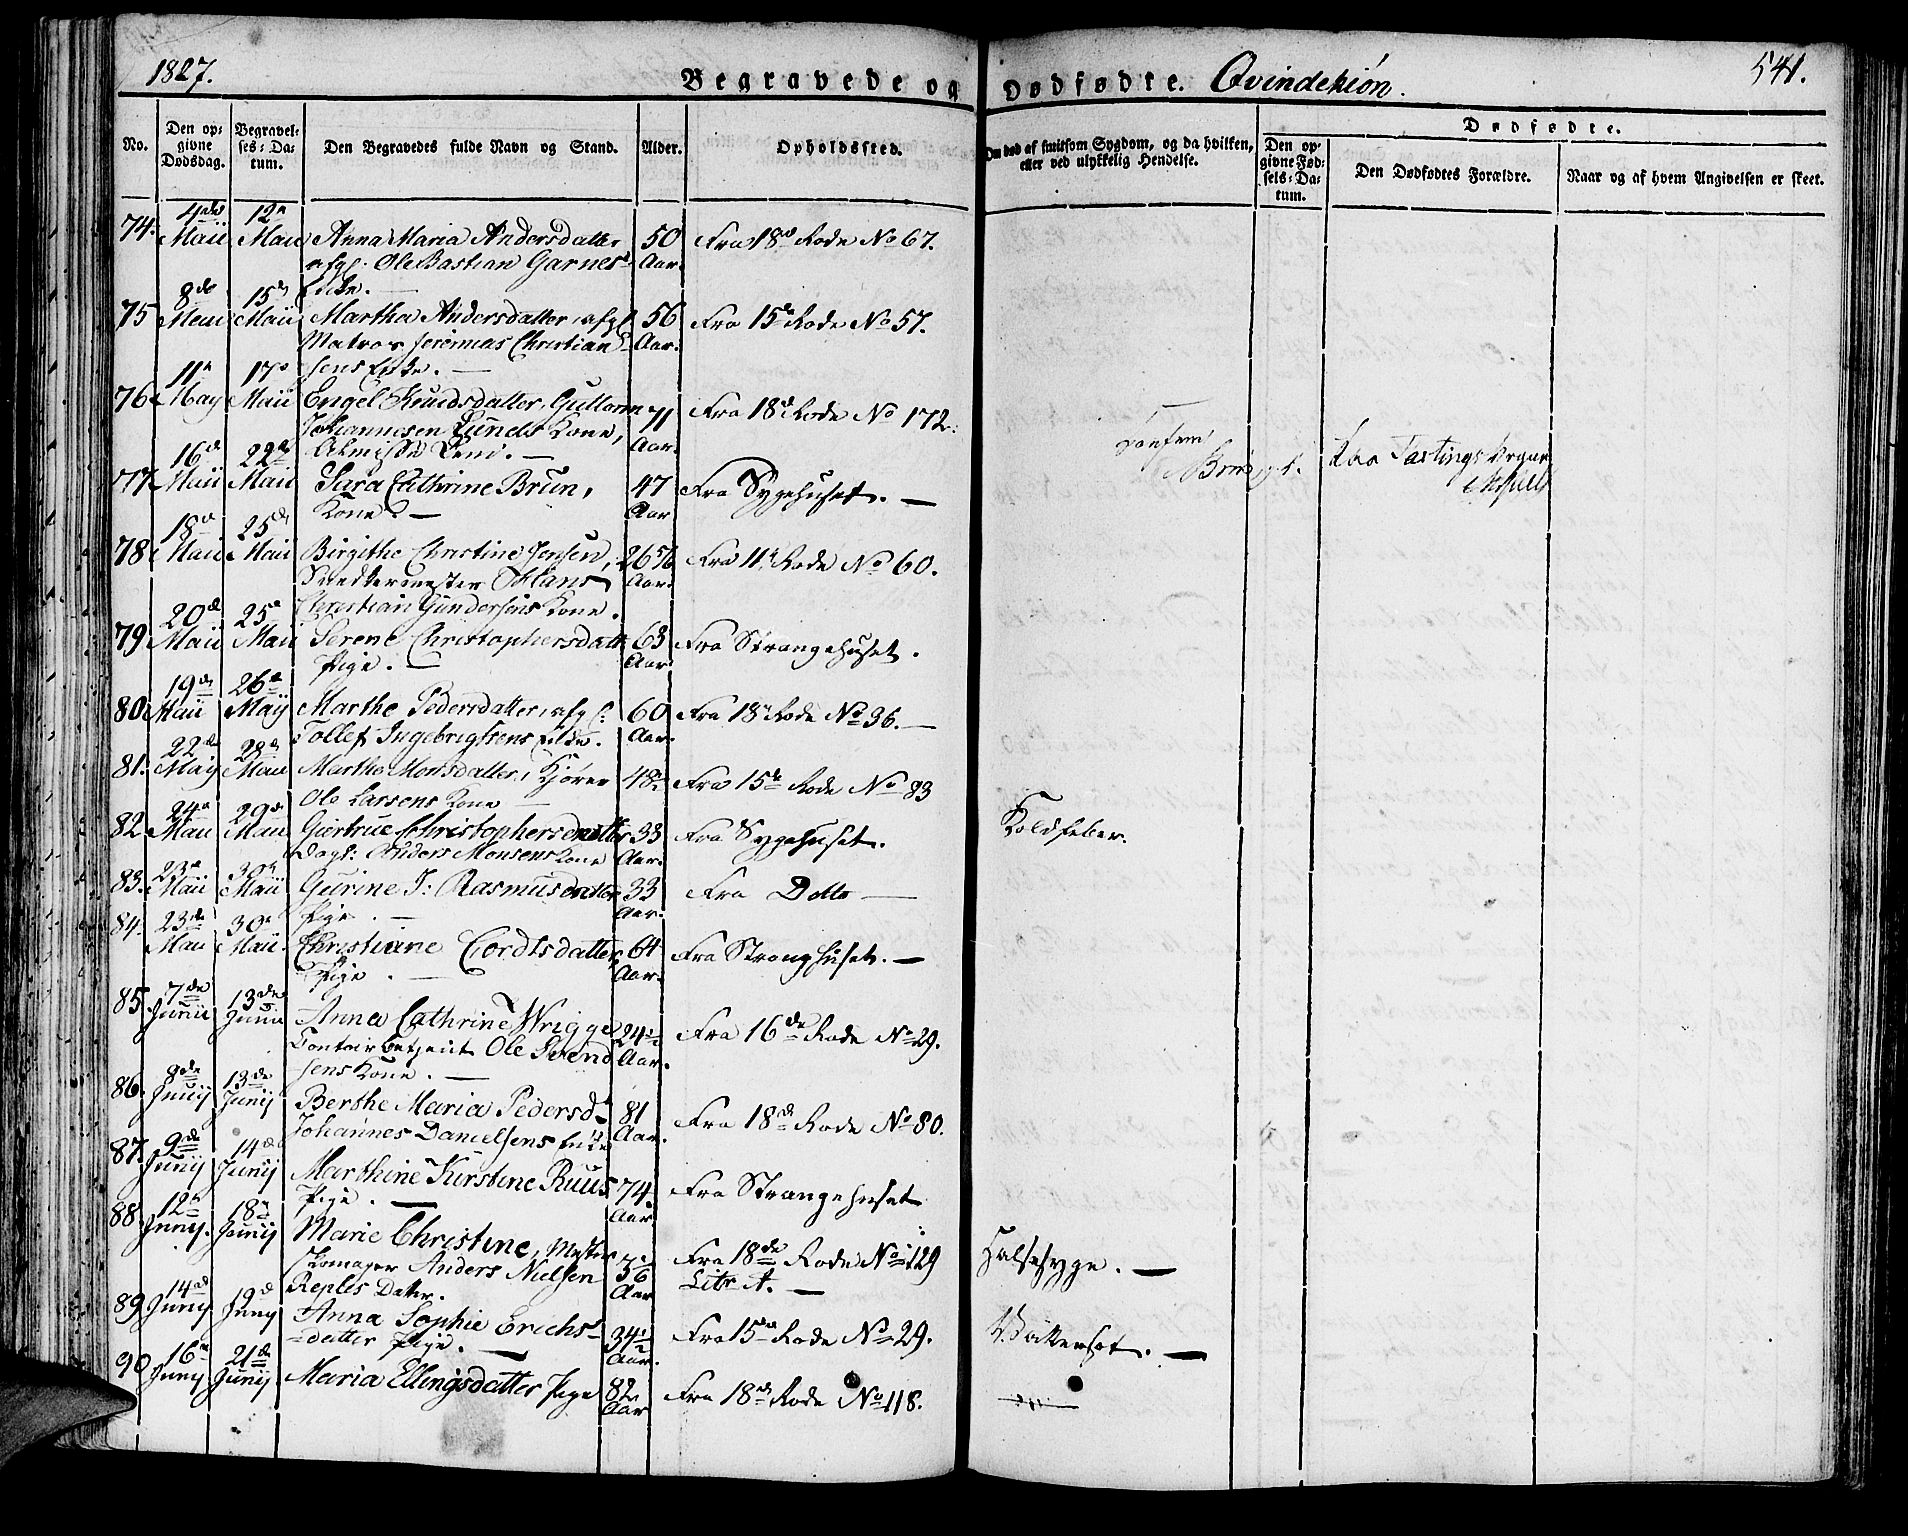 1827. Begravede og Dødfødte. Qvindekiön. 541.
No. Den opgivne Dødsdag. Begravelses-Datum. Den Begravedes fulde Navn og Stand. Alder. Opholdssted. Om død af smitsom Sygdom, og da hvilken, eller ved ulykkelig Hendelse. Dødfødte. Den opgivne Fødsels-Datum. Den Dødfødtes Forældre. Naar og af hvem Angivelsen er skeet.
74. 4de Maii 12te Maii Anna Maria Andersdatter 50 Aar. Fra 18de Rode No 67.
afgl. Ole Bastian Garnes
Enke.
75 8de Maii 15de Maii Martha Andersdatter, afgl. 56 Aar. Fra 15de Rode No 57.
Matros Jeremias Christian-
sens Enke. —
76 11te May 17de Maii Engel Knudsdatter, Guttorm 71 Aar. Fra 18de Rode No 172.
Johannesen Lunds Kone,
Almisse Lem. —
77 16de Maii 22de Maii Sara Cathrine Brun, 47 Aar Fra Sygehuset. —
Kone. —
78 18de Maii 25de Maii Birgithe Christine Jensen, 26 5/6 Aar. Fra 11te Rode No 60.
Snedkermester Hans
Christian Gundersens Kone.
79 20de Maii 25de Maii Serene Christophersdatt. 63 Aar. Fra Strangehuset.
Pige. —
80 19de Maii 26de Maij Marthe Pedersdatter, afgl: 60 Aar. Fra 18de Rode No 36. —
Tollef Ingebrigtsens Enke.
81. 22de May 28de Maii Marthe Monsdatter, Kjører 48 Fra 15de Rode No 83
Ole Larsens Kone —
82 24de Maii 29de Maii Giertrue Christophersdatter 33 Aar. Fra Sygehuset. Koldfeber.
Dagl: Anders Monsens Kone
83. 23de Maii 30te Maii Gurine J: Rasmusdatter 33 Aar. Fra Dotto —
Pige. —
84. 23de Maii 30te Maii. Christiane Cordtsdatter, 64 Aar. Fra Stranghuset. —
Pige. —
85. 7de Junii 13de Junii Anna Cathrine Wrigge 24 1/2 Aar. Fra 16de Rode No 29.
Contoirbetjent Ole Svend
sens Kone. —
86. 8de Junij 13de Junij Berthe Maria Pedersd. 81 Aar. Fra 18de Rode No 80.
Johannes Danielsens Enke
87. 9de Junij 14de Junij Marthine Kirstine Ruus 74. Aar. Fra Strangehuset
Pige. —
88. 12te Junij. 18de Junij Marie Christine, Mester Fra 18de Rode No 129 Halssyge. —
Skomager Anders Nielsen Aar Litr A. —
Reples Datter.
89 14de Junij 19de Junij Anna Sophie Erichs- 34 1/2 Aar. Fra 15de Rode No 29. Vattersot. —
datter Pige. —
90 16de Junij 21de Junij Maria Ellingsdatter Pige 82 Aar Fra 18de Rode No 118.